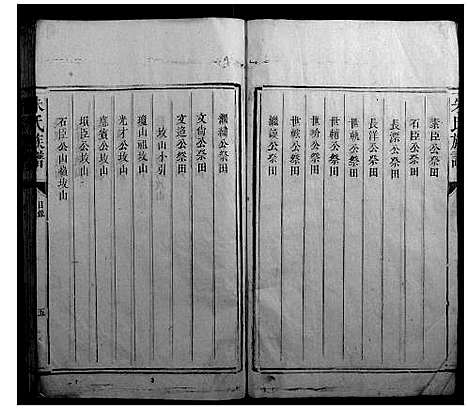 氏族譜
素臣公祭田
石臣公祭田
長澐公祭田
長洋公祭田
世輔公祭田
世哈公祭田
世緱公祭田
繼鎬公祭田
繼繡公祭田
文尙公祭田
文進公祭田
坟山小引
瓊山祖坟山
光才公坟山
應賓公坟山
瑱臣公坟山
石臣公山嶺坟山
朱氏族譜
目錄
五